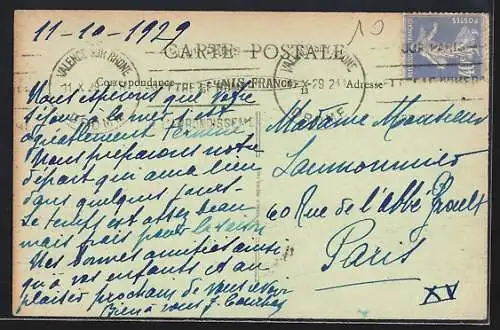 11-10-1929
10
CARTE POSTALE
Correspondance
Adresse
VALENCE SUR RHONE
POSTES
Nous espérons que votre
séjour à la mer s'est
agréablement terminé.
Nous préparons notre
départ qui aura lieu
dans quelques jours.
Le temps est assez beau
mais frais pour la saison
Nos bonnes amitiés ainsi
qu'à vos enfants et au
plaisir prochain de vous revoir
Bien à vous J.
Madame Monsieur
Laumonnier
60 Rue de l'abbé Groult
Paris
XV